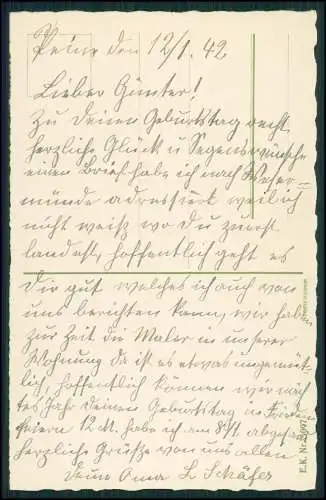 Peine den 12/1. 42
Lieber Günter!
Zu deinen Geburtstag recht
herzliche Glück u Segenswünsche
einen Brief habe ich nach Weser=
münde adressiert weil ich
nicht weiß wo du zuerst
landest, hoffentlich geht es
Dir gut welches ich auch von
uns berichten kann, wir haben
zur Zeit die Maler in unserer
Wohnung da ist es etwas ungemüt
lich, hoffentlich können wir näch
tes Jahr deinen Geburtstag in Frieden
feiern 12 M. habe ich am 8/1. abgesan
herzliche Grüße von uns allen
deine Oma L Schäfer
E.K. Nr.